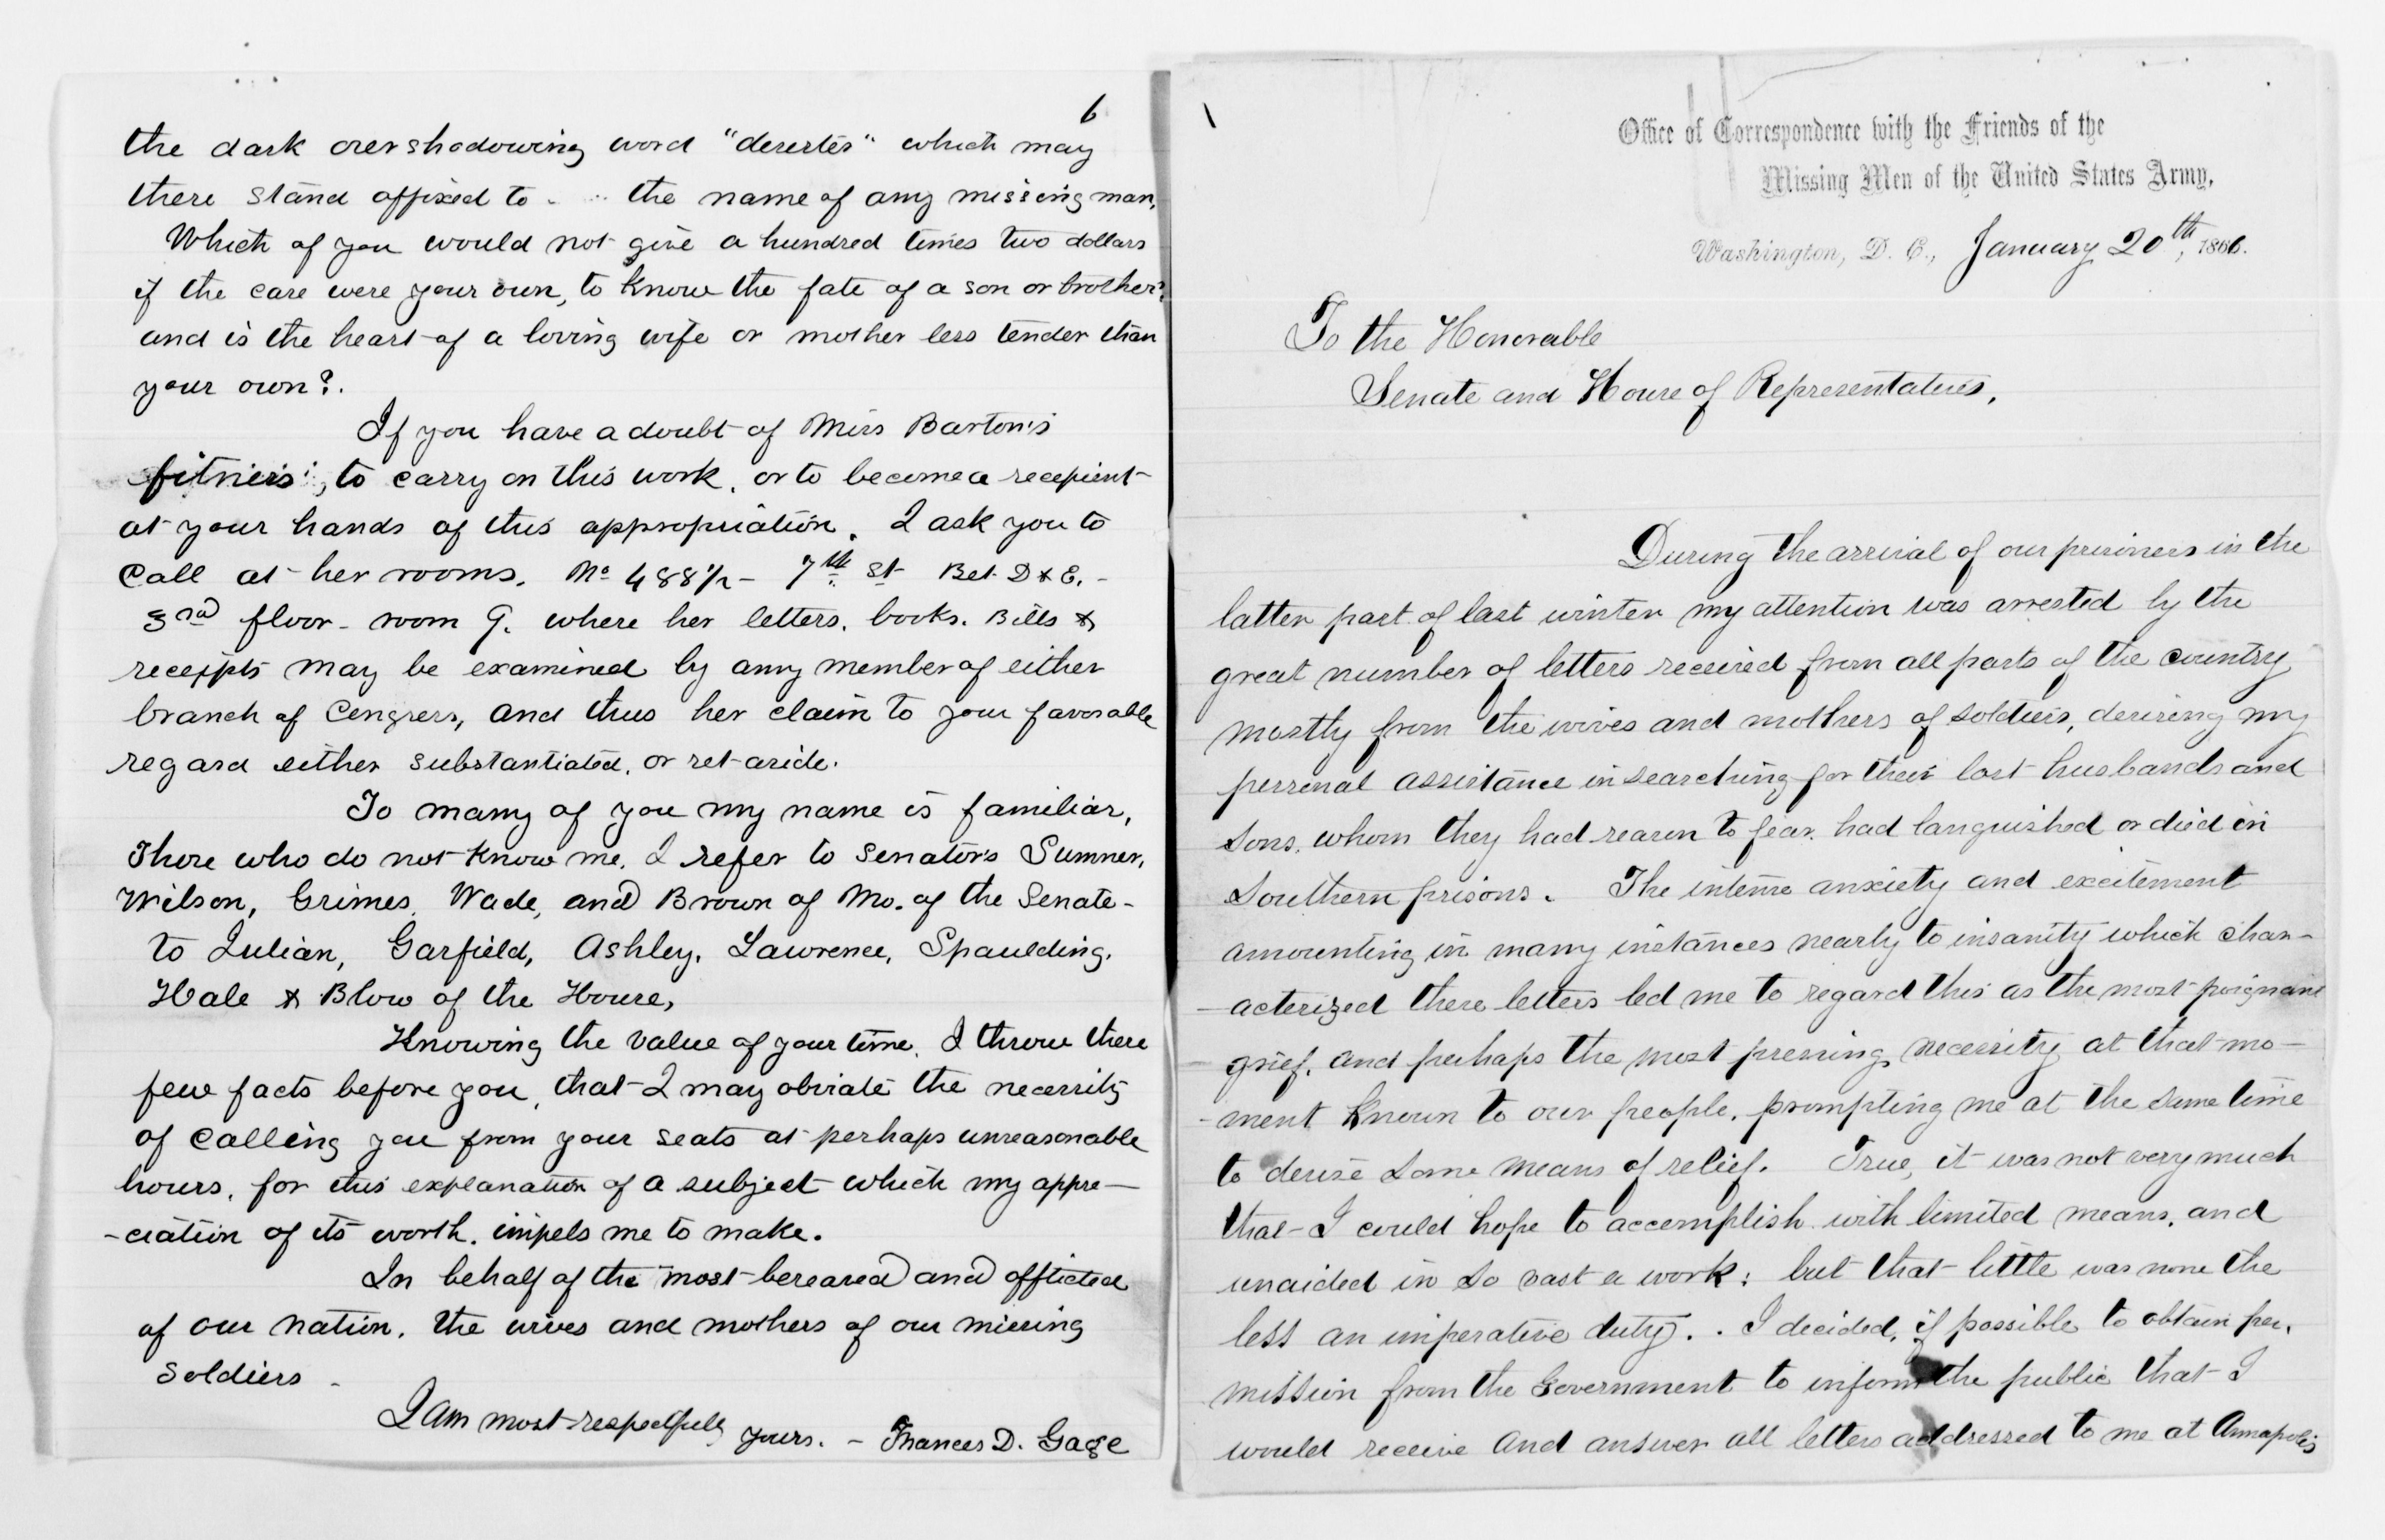 6
the dark overshadowing word "deserter" which may
there stand affixed to - the name of any missing man,
Which of you would not give a hundred times two dollars
if the case were your own, to know the fate of a son or brother?
and is the heart of a loving wife or mother less tender than
your own?.
If you have a doubt of Miss Barton's
fitness, to carry on this work, or to become a recepient
at your hands of this appropriation. I ask you to
Call at her rooms. No 488½ - 7th St Bet. D & E. -
3rd floor - room 9. where her letters, books. Bills &
receipts may be examined by any member of either
branch of Congress, and thus her claim to your favorable
regard either substantiated, or set aside.
To many of you my name is familiar,
Those who do not know me, I refer to Senators Sumner,
Wilson, Grimes, Wade, and Brown of Mo. of the Senate -
to Julian, Garfield, Ashley, Lawrence, Spaulding,
Hale & Blow of the House,
Knowing the value of your time, I throw these
few facts before you, that I may obviate the necessity
of calling you from your seats at perhaps unreasonable
hours, for this explanation of a subject which my appre-
-ciation of its worth, impels me to make.
In behalf of the most bereaved and afflicted
of our nation, the wives and mothers of our missing
soldiers -
I am most respectfully yours. - Frances D. Gage
Office of Correspondence with the Friends of the
Missing Men of the United States Army,
Washington, D. C., January 20th, 1866.
To the Honorable
Senate and House of Representatives,
During the arrival of our prisoners in the
latter part of last winter my attention was arrested by the
great number of letters received from all parts of the country
mostly from the wives and mothers of soldiers, desiring my
personal assistance in searching for their lost husbands and
sons, whom they had reason to fear, had languished or died in
Southern prisons. The intense anxiety and excitement
amounting in many instances nearly to insanity which char-
-acterized these letters led me to regard this as the most poignant
grief, and perhaps the most pressing necessity at that mo-
-ment known to our people, prompting me at the same time
to devise some means of relief. True, it was not very much
that I could hope to accomplish with limited means, and
unaided in so vast a work; but that little was none the
less an imperative duty. I decided, if possible to obtain per-
mission from the Government to inform the public that I
would receive and answer all letters addressed to me at Annapolis